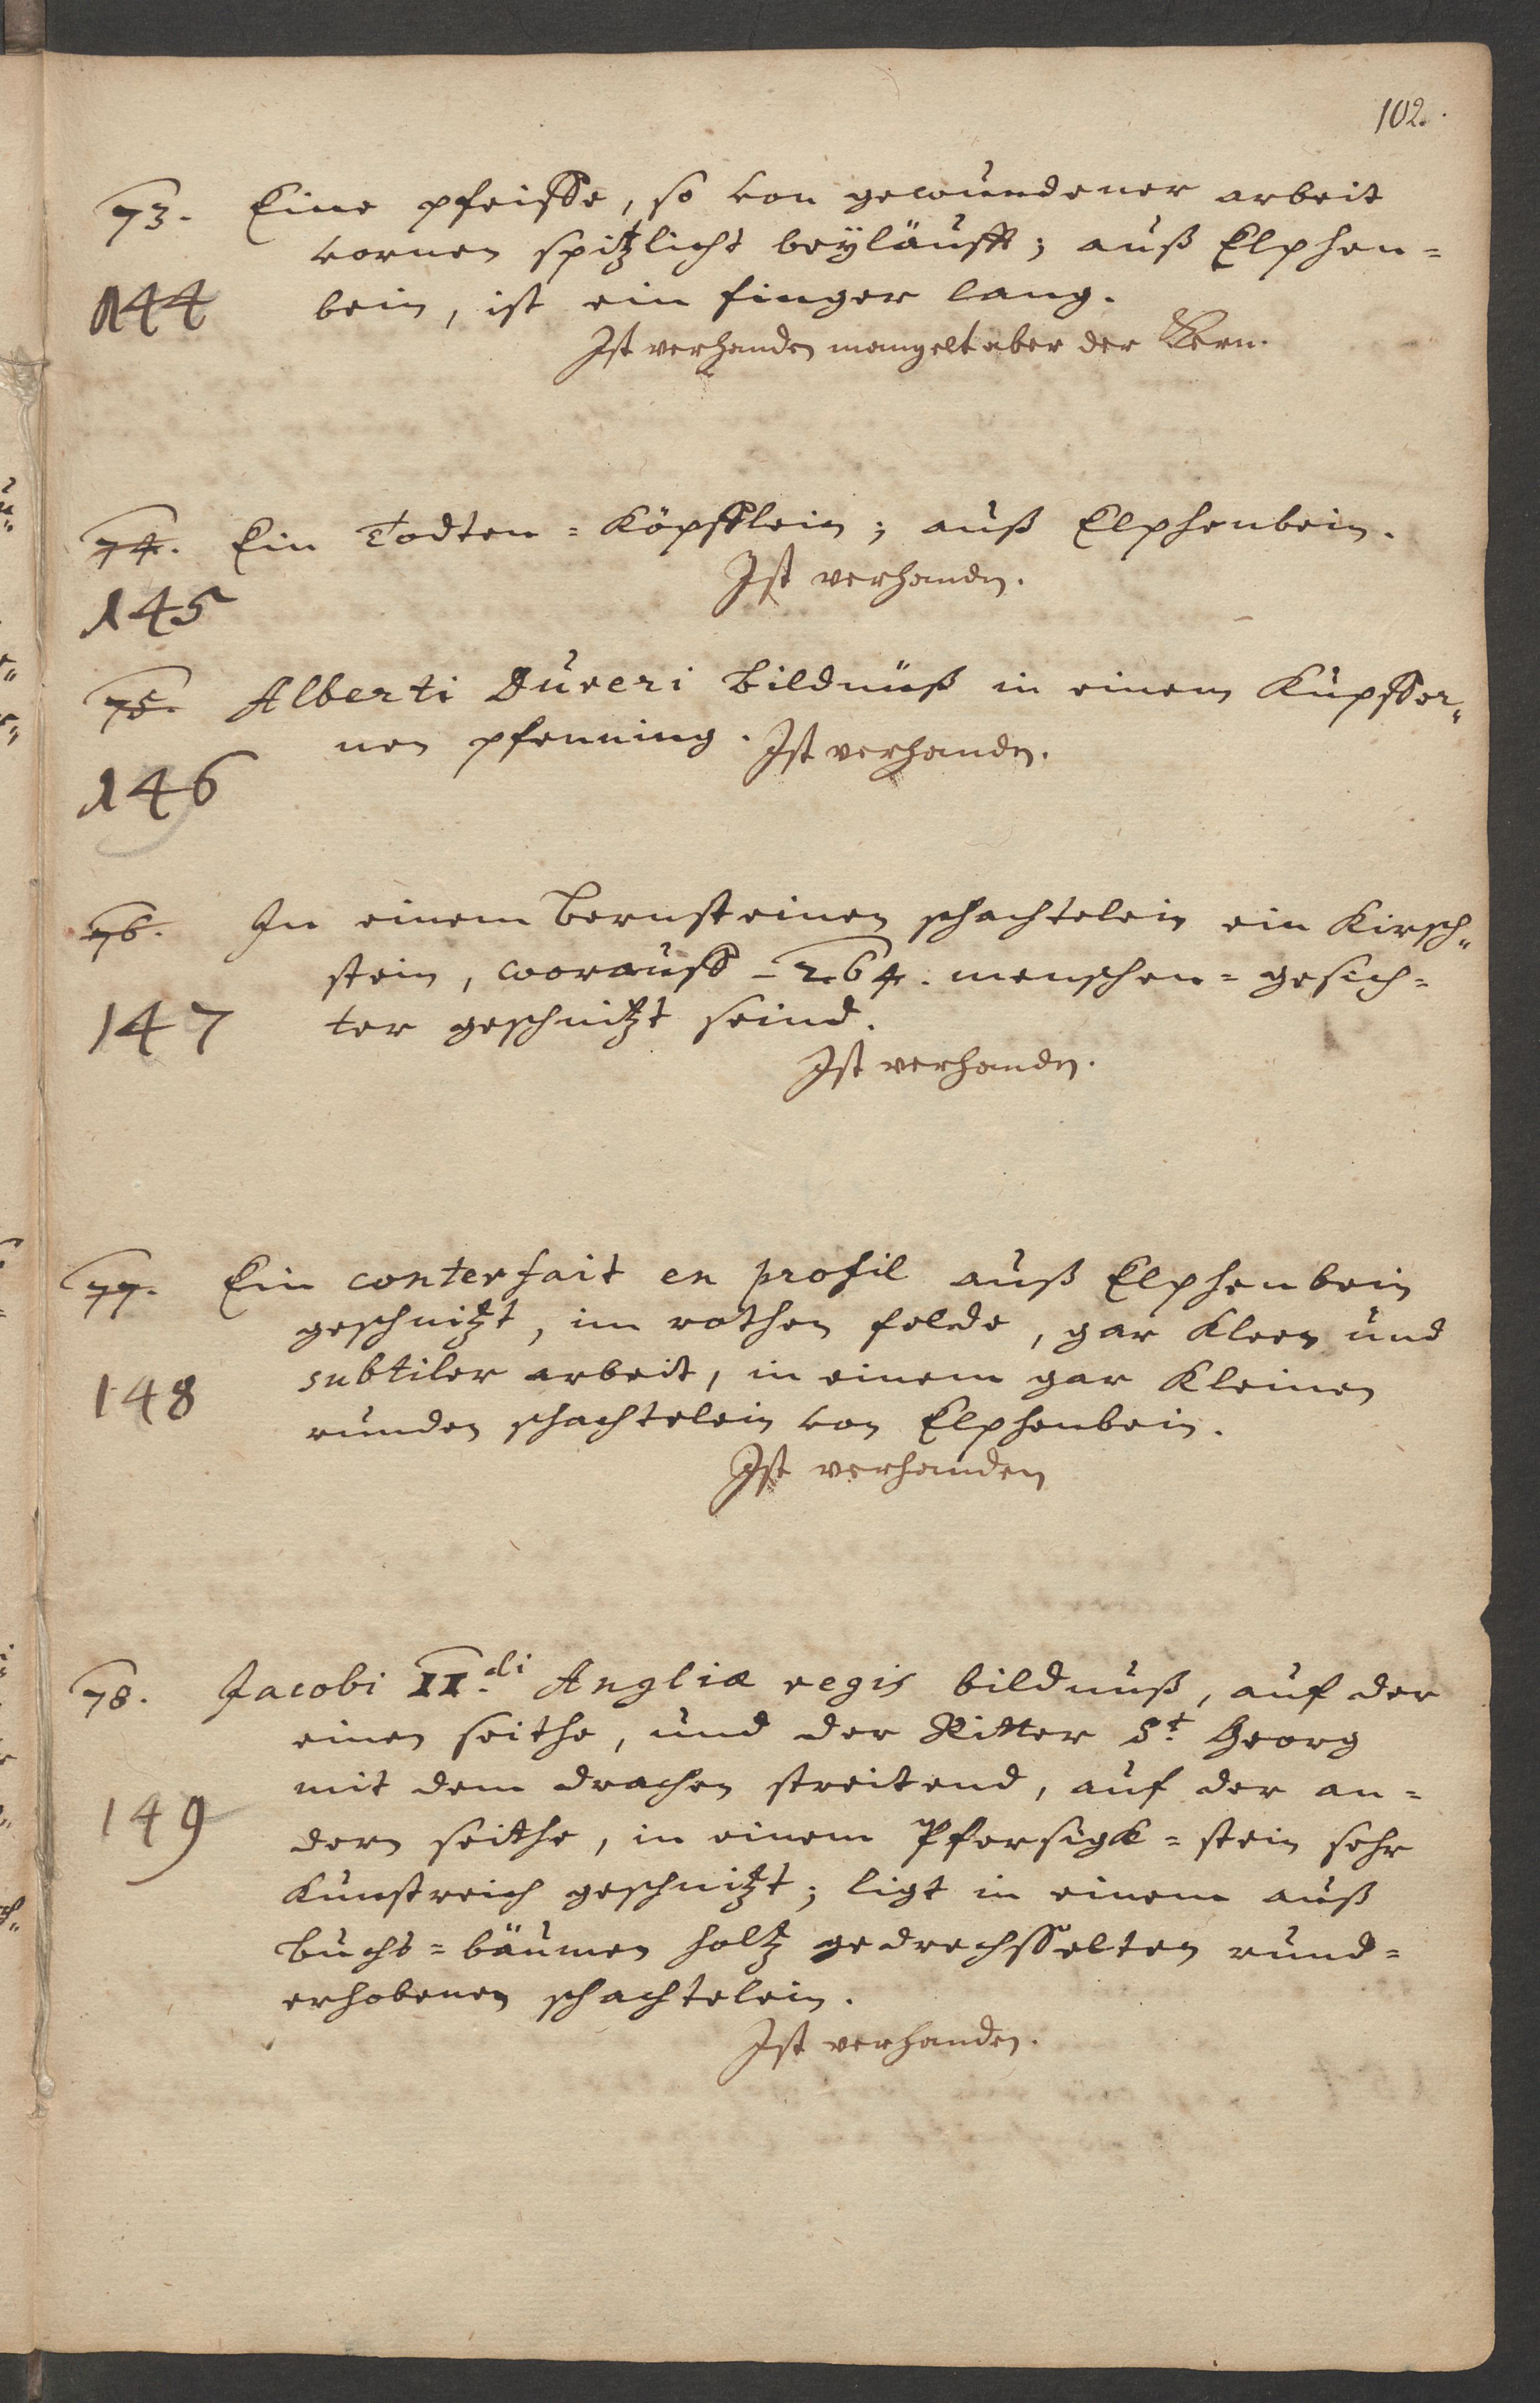 102.
73. Eine pfeiffe, so von gewundener arbeit
vornen spitzlicht beyläufft; auß Elphen=
144 bein, ist ein finger lang.
Ist verhanden mangelt aber der Kern.
74. Ein Todten=Köpfflein; auß Elphenbein.
Ist verhanden.
145
75. Alberti Dureri Bildnüß in einem Kupffer„
nen pfenning. Ist verhanden.
146
76. In einem Bernsteinen schachtelein ein Kirsch„
stein, worauff -264. menschen=gesich=
147 ter geschnitzt seind.
Ist verhanden.
77. Ein conterfait en profil auß Elphenbein
geschnitzt, im rothen felde, gar kleen und
148 subtiler arbeit, in einem gar kleinen
runden schachtelein von Elphenbein.
Ist verhanden
78. Jacobi II.di Angliæ regis bildnuß, auf der
einen seithe, und der Ritter St. Georg
mit dem drachen streitend, auf der an=
149 dern seithe, in einem Pfersigk=stein sehr
kunstreich geschnitzt; ligt in einem auß
buchs=bäumen holtz gedrechsselten rund=
erhobenen schachtelein.
Ist verhanden.